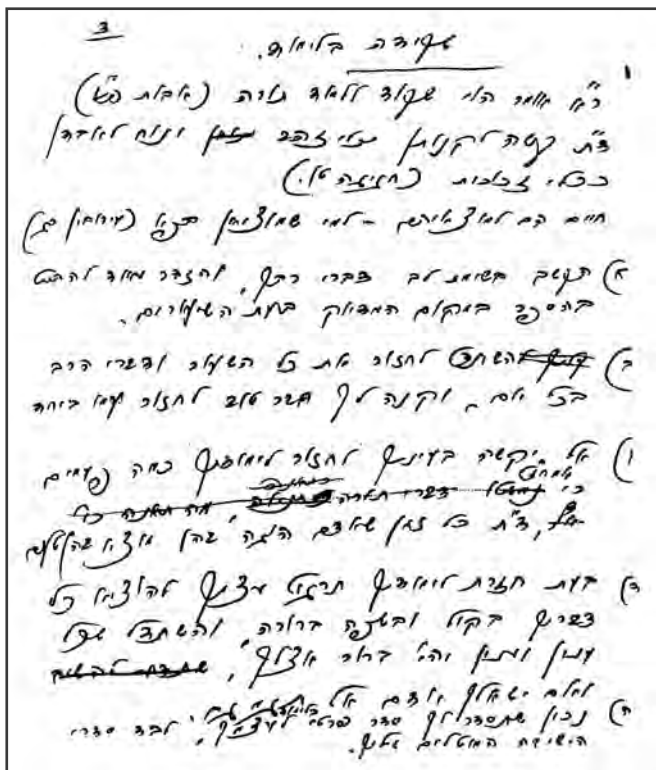 3
שקידה בלימוד.
1
ר"א אומר הוי שקוד ללמוד תורה (אבות פ"ב)
ד"ת קשה לקנותן ככלי זהב ונוח לאבדן
ככלי זכוכית (חגיגה טו.)
חיים הם למוצאיהם – למי שמוציאן בפיו (עירובין נד)
א) תקשב בשימת לב דברי רבך, ותזהר מאוד להביט
בהספר במקום המדויק בעת השיעורים.
ב) השתדל לחזור את כל השיעור ודברי הרב
בכל יום, וקנה לך חבר טוב לחזור עמו ביחד
ג) אל יקשה בעיניך לחזור לימודך כמה פעמים
כי דברי תורה
ד"ת כל זמן שאדם הוגה בהן מוצא בהן טעם
ד) בעת חזרת לימודך תרגיל עצמך להוציא כל
דבריך בקול ובשפה ברורה, והשתדל שכל
ענין וענין יהי' ברור אצלך,
ולאם ישאלך אדם אל
ה) נכון שתסדר לך סדר פרטי לעצמך, לבד סדרי
הישיבה המוטלים עליך.